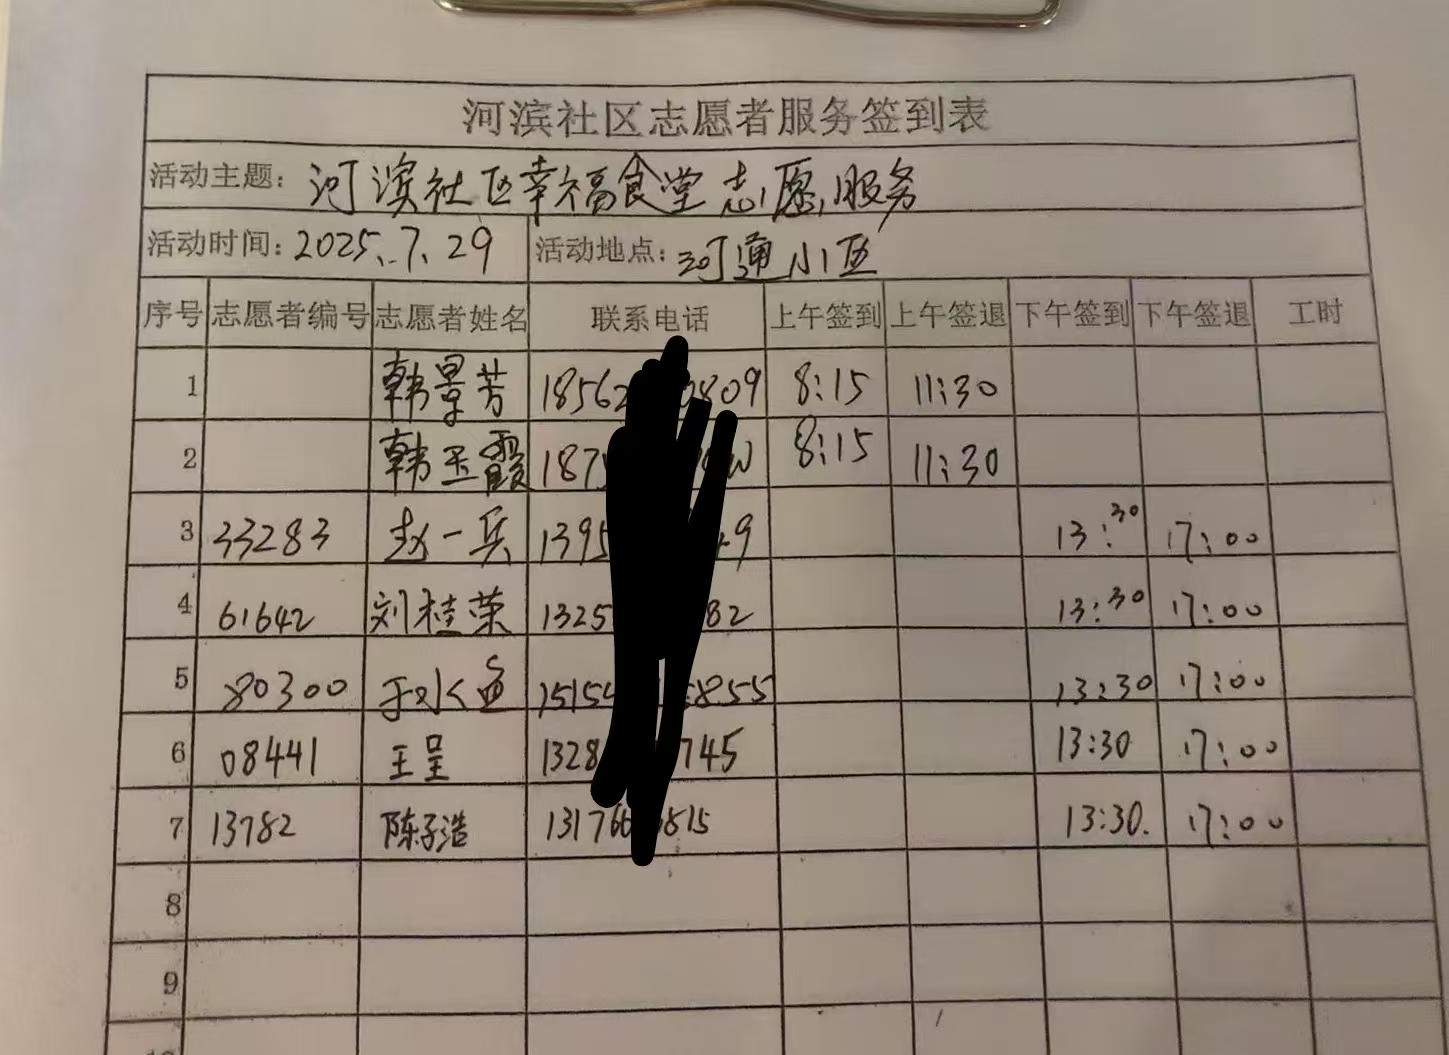 河滨社区志愿者服务签到表
活动主题: 河滨社区幸福食堂志愿服务
活动时间: 2025.7.29 活动地点: 河通小区
序号 志愿者编号 志愿者姓名 联系电话 上午签到 上午签退 下午签到 下午签退 工时
1 韩景芳 18562 0809 8:15 11:30
2 韩玉霞 187 8:15 11:30
3 33283 赵一兵 1395 49 13:30 17:00
4 61642 刘桂荣 1325 82 13:30 17:00
5 80300 15154 8855 13:30 17:00
6 08441 王呈 1328 745 13:30 17:00
7 13782 陈子浩 13176 815 13:30. 17:00
8
9